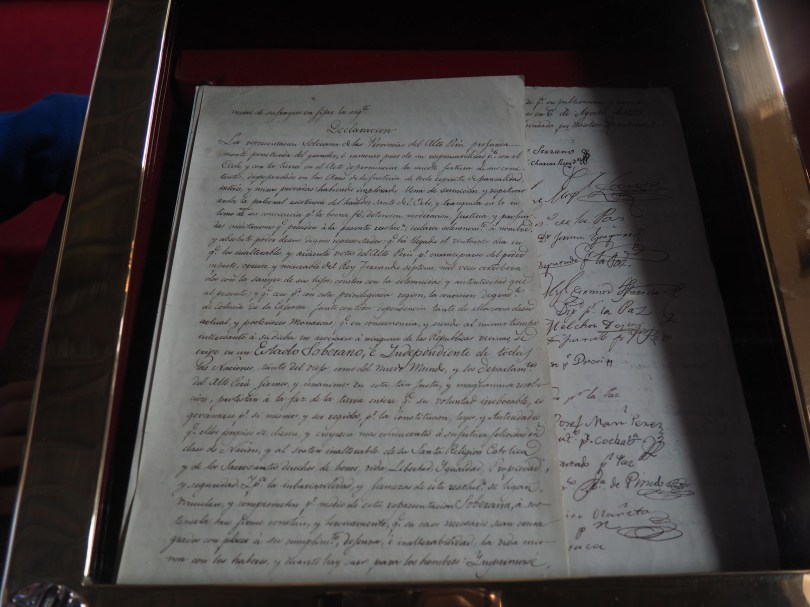 Declaracion
La representacion Soberana de las Provincias del Alto Perú, profunda-
mente penetrada del grandor, é inmenso peso de su responsabilidad p.ª con el
Cielo, y con la tierra en el Acto de pronunciar la suerte futura de sus comi-
tentes, despojandose en las Aras de la Justicia de todo espiritu de parcialidad,
interés, y miras privadas; habiendo implorado, llena de sumision, y
ardor la paternal asistencia del Hacedor Santo del Orbe, y tranquila en lo in-
timo de su conciencia pr. la buena fé, detencion, moderacion, Justicia, y profun-
das meditaciones q.e presiden á la presente resoluc.n declara solemnemente á nombre,
y absoluto poder de sus dignos representados: q.e ha llegado el venturoso dia en
q.e los inalterables, y ardientes votos del Alto Perú pr. emanciparse del poder
injusto, opresor, y miserable del Rey Fernando septimo, mil veces corrobora-
dos con la sangre de sus hijos, consten con la solemnidad, y autenticidad que
al presente, y q.e cese p.ª con esta privilegiada region, la condicion degradante
de colonia de la España, junto con toda dependencia, tanto de ella, como de su
actual, y posteriores Monarcas: q.e en consecuencia, y siendo al mismo tiempo
interesante á su dicha, no asociarse á ninguna de las Republicas vecinas, se
erige en un Estado Soberano, é Independiente de todas
las Naciones, tanto del viejo, como del nuevo Mundo, y los departamentos
del Alto Perú, firmes, y unanimes en esta tan justa, y magnanima resolu-
cion, protestan á la faz de la tierra entera, q.e su voluntad irrevocable, es
governarse pr. sí mismos, y ser regidos, pr. la Constitucion, leyes, y Autoridades
q.e ellos propios se diesen, y creyesen mas conducentes á su futura felicidad en
clase de Nacion, y al sosten inalterable de su Santa Religion Catolica
y de los Sacrosantos derechos de honor, vida, Libertad, Igualdad, Propiedad,
y seguridad. Y p.ª la invariabilidad, y firmeza de esta resoluc.n se ligan,
vinculan, y comprometen, pr. medio de esta representacion Soberana, á sos-
tenerla tan firme, constante, y heroicamente, q.e en caso necesario sean consa-
grados con placer á su cumplimto. defensa, é inalterabilidad, la vida mis-
ma con los haberes, y cuanto hay caro para los hombres. Imprimase
Serrano
p.r La Paz
p.r la Paz
Dip.o p.r la Paz
Melchor Daza
p.r Potosi
p.r la Paz
Josef Mari Perez
p.r Cochab.a
p.r La Paz
de Pinedo